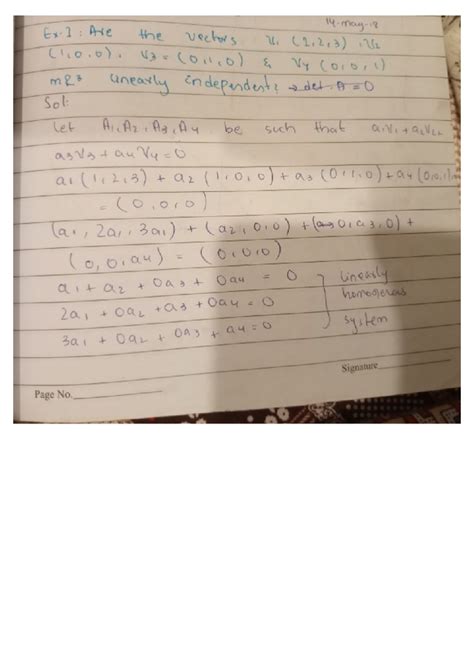 14-may-18
Ex.1: Are the vectors v1 (1,2,3), v2
(1,0,0), v3 = (0,1,0) & v4 (0,0,1)
in R3 linearly independent? → det. A = 0
Sol:
Let A1, A2, A3, A4 be such that a1v1 + a2v2+
a3v3 + a4v4 = 0
a1 (1,2,3) + a2 (1,0,0) + a3 (0,1,0) + a4 (0,0,1)
= (0,0,0)
(a1, 2a1, 3a1) + (a2,0,0) + (0,a3,0) +
(0,0,a4) = (0,0,0)
a1 + a2 + 0a3 + 0a4 = 0 linearly
2a1 + 0a2 + a3 + 0a4 = 0 homogenous
3a1 + 0a2 + 0a3 + a4 = 0 system
Signature
Page No.